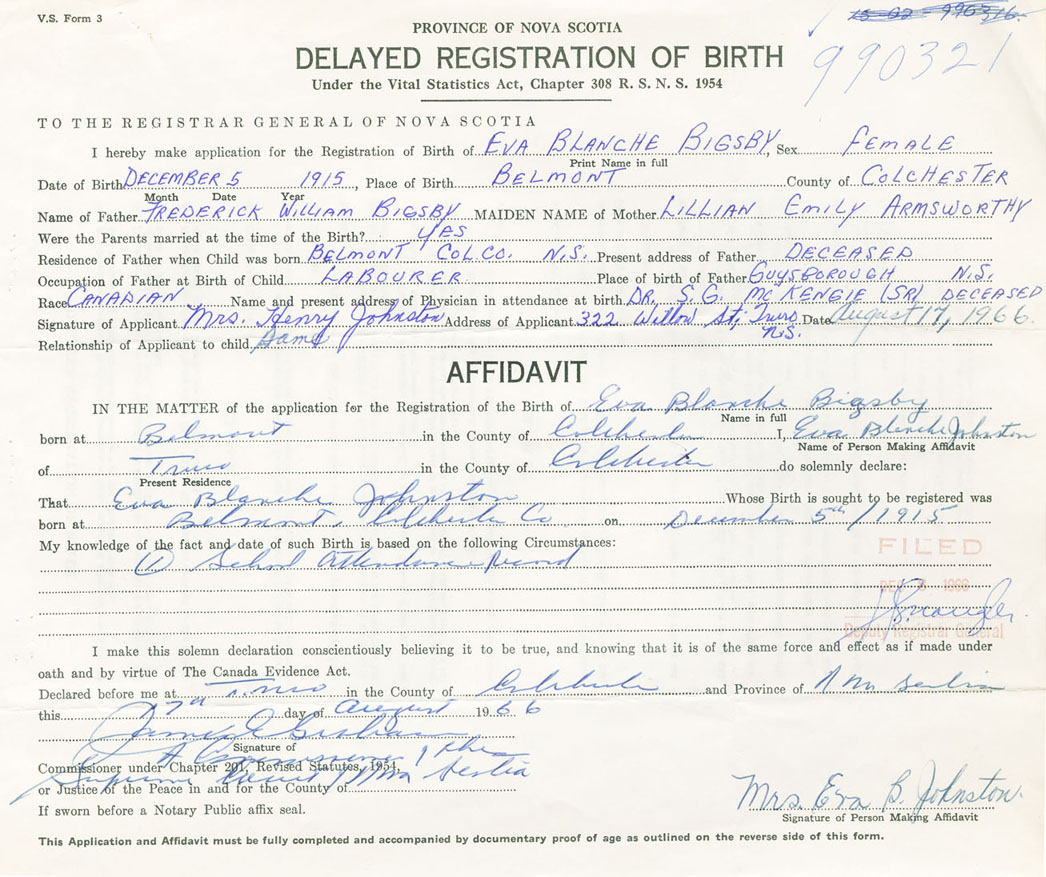 V.S. Form 3
15-02-990316
PROVINCE OF NOVA SCOTIA
990321
DELAYED REGISTRATION OF BIRTH
Under the Vital Statistics Act, Chapter 308 R. S. N. S. 1954
TO THE REGISTRAR GENERAL OF NOVA SCOTIA
I hereby make application for the Registration of Birth of EVA BLANCHE BIGSBY, Sex FEMALE
Print Name in full
Date of Birth DECEMBER 5 1915, Place of Birth BELMONT County of COLCHESTER
Month Date Year
Name of Father FREDERICK WILLIAM BIGSBY MAIDEN NAME of Mother LILLIAN EMILY ARMSWORTHY
Were the Parents married at the time of the Birth? YES
Residence of Father when Child was born BELMONT COL.CO. N.S. Present address of Father DECEASED
Occupation of Father at Birth of Child LABOURER Place of birth of Father GUYSBOROUGH N.S.
Race CANADIAN Name and present address of Physician in attendance at birth DR. S.G. McKENGIE (SR) DECEASED
Signature of Applicant Mrs. Henry Johnston Address of Applicant 322 Willow St; Truro N.S. Date August 17, 1966
Relationship of Applicant to child Same
AFFIDAVIT
IN THE MATTER of the application for the Registration of the Birth of Eva Blanche Bigsby
Name in full
born at Belmont in the County of Colchester I, Eva Blanche Johnston
Name of Person Making Affidavit
of Truro in the County of Colchester do solemnly declare:
Present Residence
That Eva Blanche Johnston Whose Birth is sought to be registered was
born at Belmont, Colchester Co on December 5th/1915
My knowledge of the fact and date of such Birth is based on the following Circumstances:
FILED
(1) School Attendance Record
Deputy Registrar General
I make this solemn declaration conscientiously believing it to be true, and knowing that it is of the same force and effect as if made under
oath and by virtue of The Canada Evidence Act.
Declared before me at Truro in the County of Colchester and Province of Nova Scotia
this 17th day of August 1966
Signature of
A Commissioner of the
Commissioner under Chapter 201, Revised Statutes, 1954,
Supreme Court of Nova Scotia
or Justice of the Peace in and for the County of
Mrs. Eva B. Johnston.
If sworn before a Notary Public affix seal.
Signature of Person Making Affidavit
This Application and Affidavit must be fully completed and accompanied by documentary proof of age as outlined on the reverse side of this form.